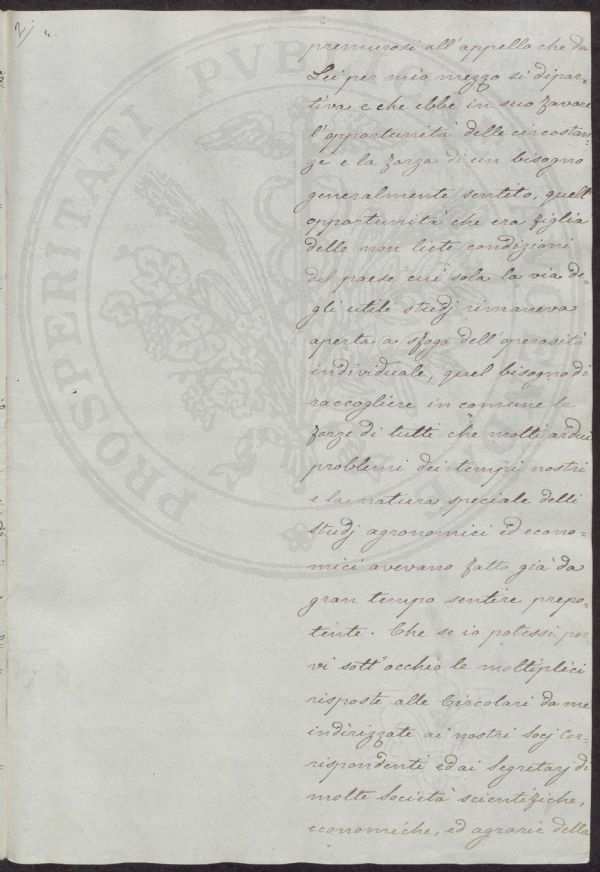 2/
premurosi all'appello che da
Lei per mio mezzo si dipar=
tiva e che ebbe in suo favore
l'opportunità delle circostan
ze e la forza di un bisogno
generalmente sentito, quell'
opportunità che era figlia
delle non liete condizioni
del paese cui sola la via de=
gli utili studj rimaneva
aperta a sfogo dell'operosità
individuale, quel bisogno di
raccogliere in comune le
forze di tutti che molti ardui
problemi dei tempi nostri
e la natura speciale delli
studj agronomici ed econo=
mici avevano fatto già da
gran tempo sentire prepo=
tente. Che se io potessi por
vi sott'occhio le moltiplici
risposte alle Circolari da me
indirizzate ai nostri Socj Cor=
rispondenti ed ai Segretarj di
molte Società scientifiche,
economiche, ed agrarie della
PROSPERITATI PUBLIC